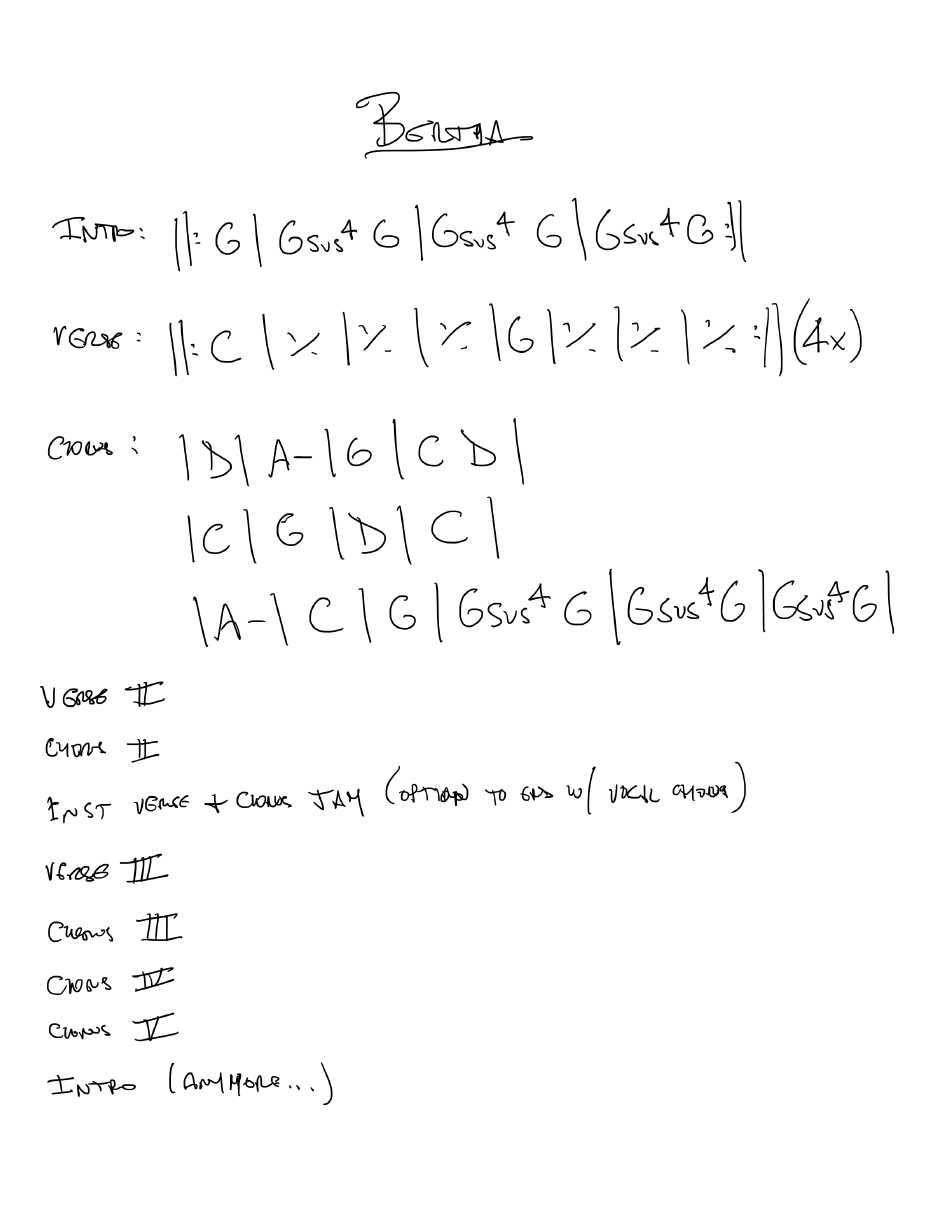 BERTHA
INTRO: ||: G | Gsus4 G | Gsus4 G | Gsus4 G :||
VERSE: ||: C | ٪ | ٪ | ٪ | G | ٪ | ٪ | ٪ :|| (4x)
CHORUS: | D | A- | G | C D |
| C | G | D | C |
| A- | C | G | Gsus4 G | Gsus4 G | Gsus4 G |
VERSE II
CHORUS II
INST VERSE + CHORUS JAM (OPTION TO END W/ VOCAL CHORUS)
VERSE III
CHORUS III
CHORUS IV
CHORUS V
INTRO (ANYMORE...)